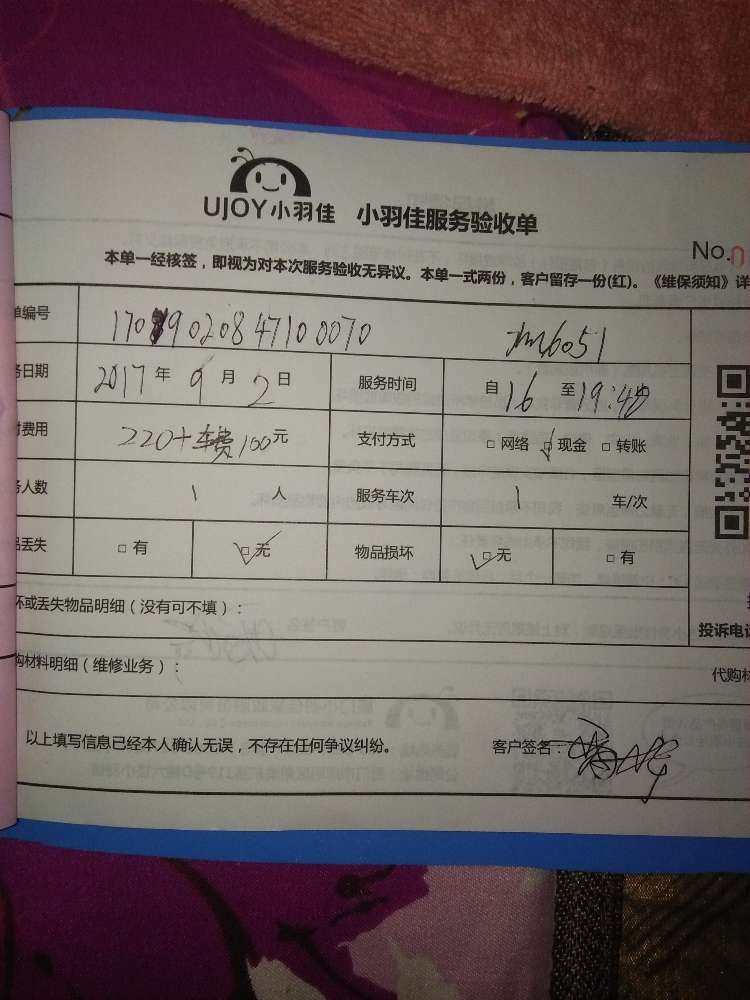 UJOY小羽佳 小羽佳服务验收单
No.
本单一经核签，即视为对本次服务验收无异议。本单一式两份，客户留存一份(红)。《维保须知》详
单编号
日期 2017 年 9 月 2 日 服务时间 自 16 至 19:40
费用 220+车费100元 支付方式 □ 网络 □ 现金 □ 转账
人数 1 人 服务车次 1 车/次
丢失 □ 有 □ 无 物品损坏 □ 无 □ 有
坏或丢失物品明细（没有可不填）：
投诉电话
购材料明细（维修业务）：
代购材
以上填写信息已经本人确认无误，不存在任何争议纠纷。 客户签名：